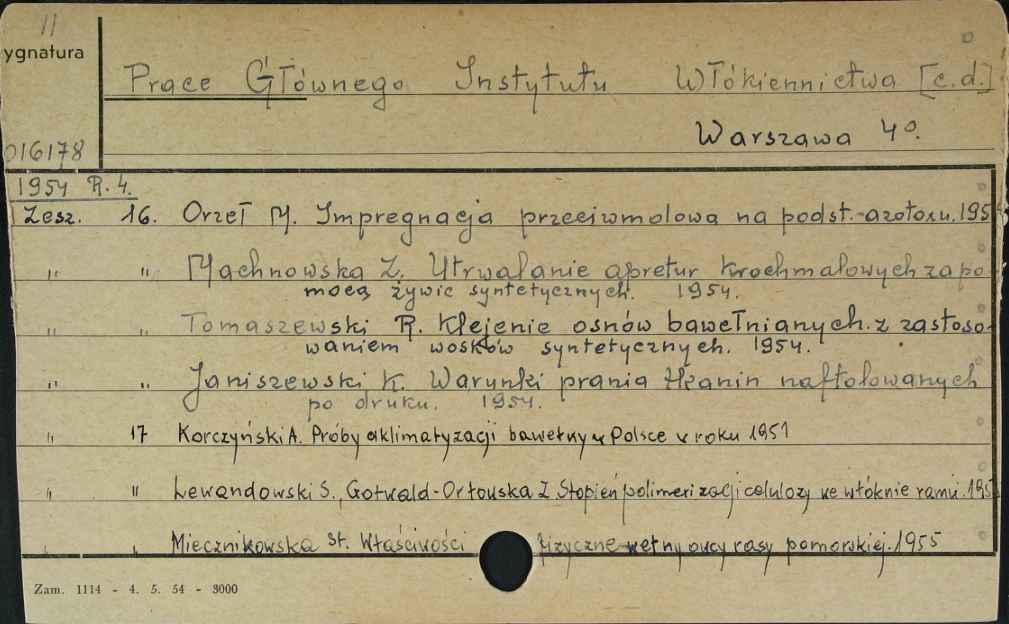 11
ygnatura
Prace Głównego Instytutu Włókiennictwa [c.d.]
Warszawa 4°.
016178
1954 R. 4.
Zesz. 16. Orzeł M. Impregnacja przeciwmolowa na podst. azotoxu. 195
" " Machnowska Z. Utrwalanie apretur krochmalowych za po-
mocą żywic syntetycznych. 1954.
" " Tomaszewski R. Klejenie osnów bawełnianych z zastoso-
waniem wosków syntetycznych. 1954.
" " Janiszewski K. Warunki prania tkanin naftolowanych
po druku. 1954.
" 17 Korczyński A. Próby aklimatyzacji bawełny w Polsce w roku 1951
" " Lewandowski S., Gotwald-Orłowska Z. Stopień polimeryzacji celulozy we włóknie ramii. 195
" " Miecznikowska St. Właściwości fizyczne wełny owcy rasy pomorskiej. 1955
Zam. 1114 - 4. 5. 54 - 3000